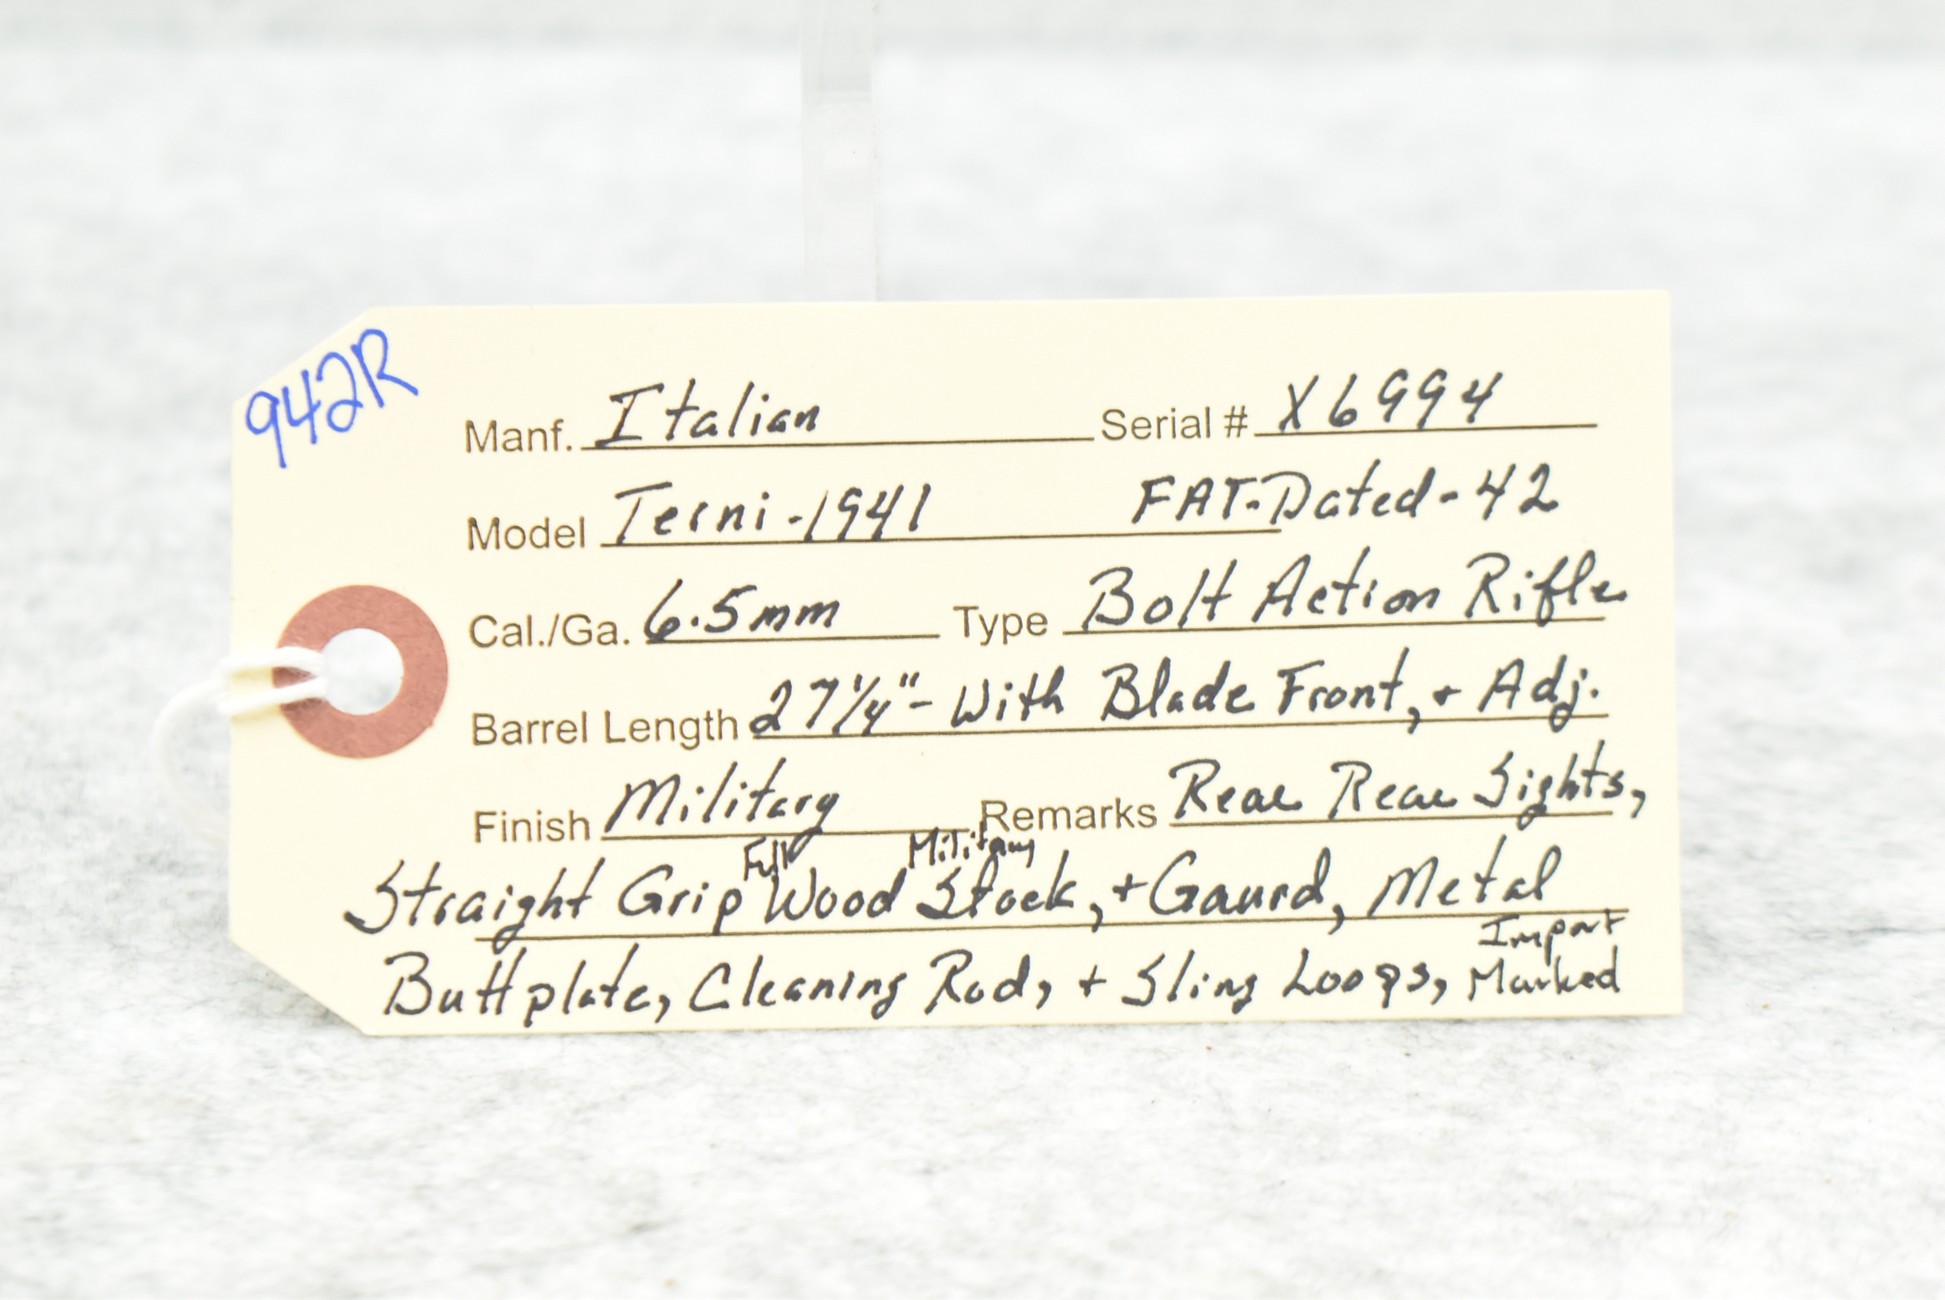 942R
Manf. Italian Serial # X6994
Model Terni-1941 FAT-Dated-42
Cal./Ga. 6.5mm Type Bolt Action Rifle
Barrel Length 27 1/4" - With Blade Front, + Adj.
Finish Military Remarks Rear Rear Sights,
Straight Grip Full Wood Military Stock, + Gaurd, Metal
Buttplate, Cleaning Rod, + Sling Loops, Import Marked